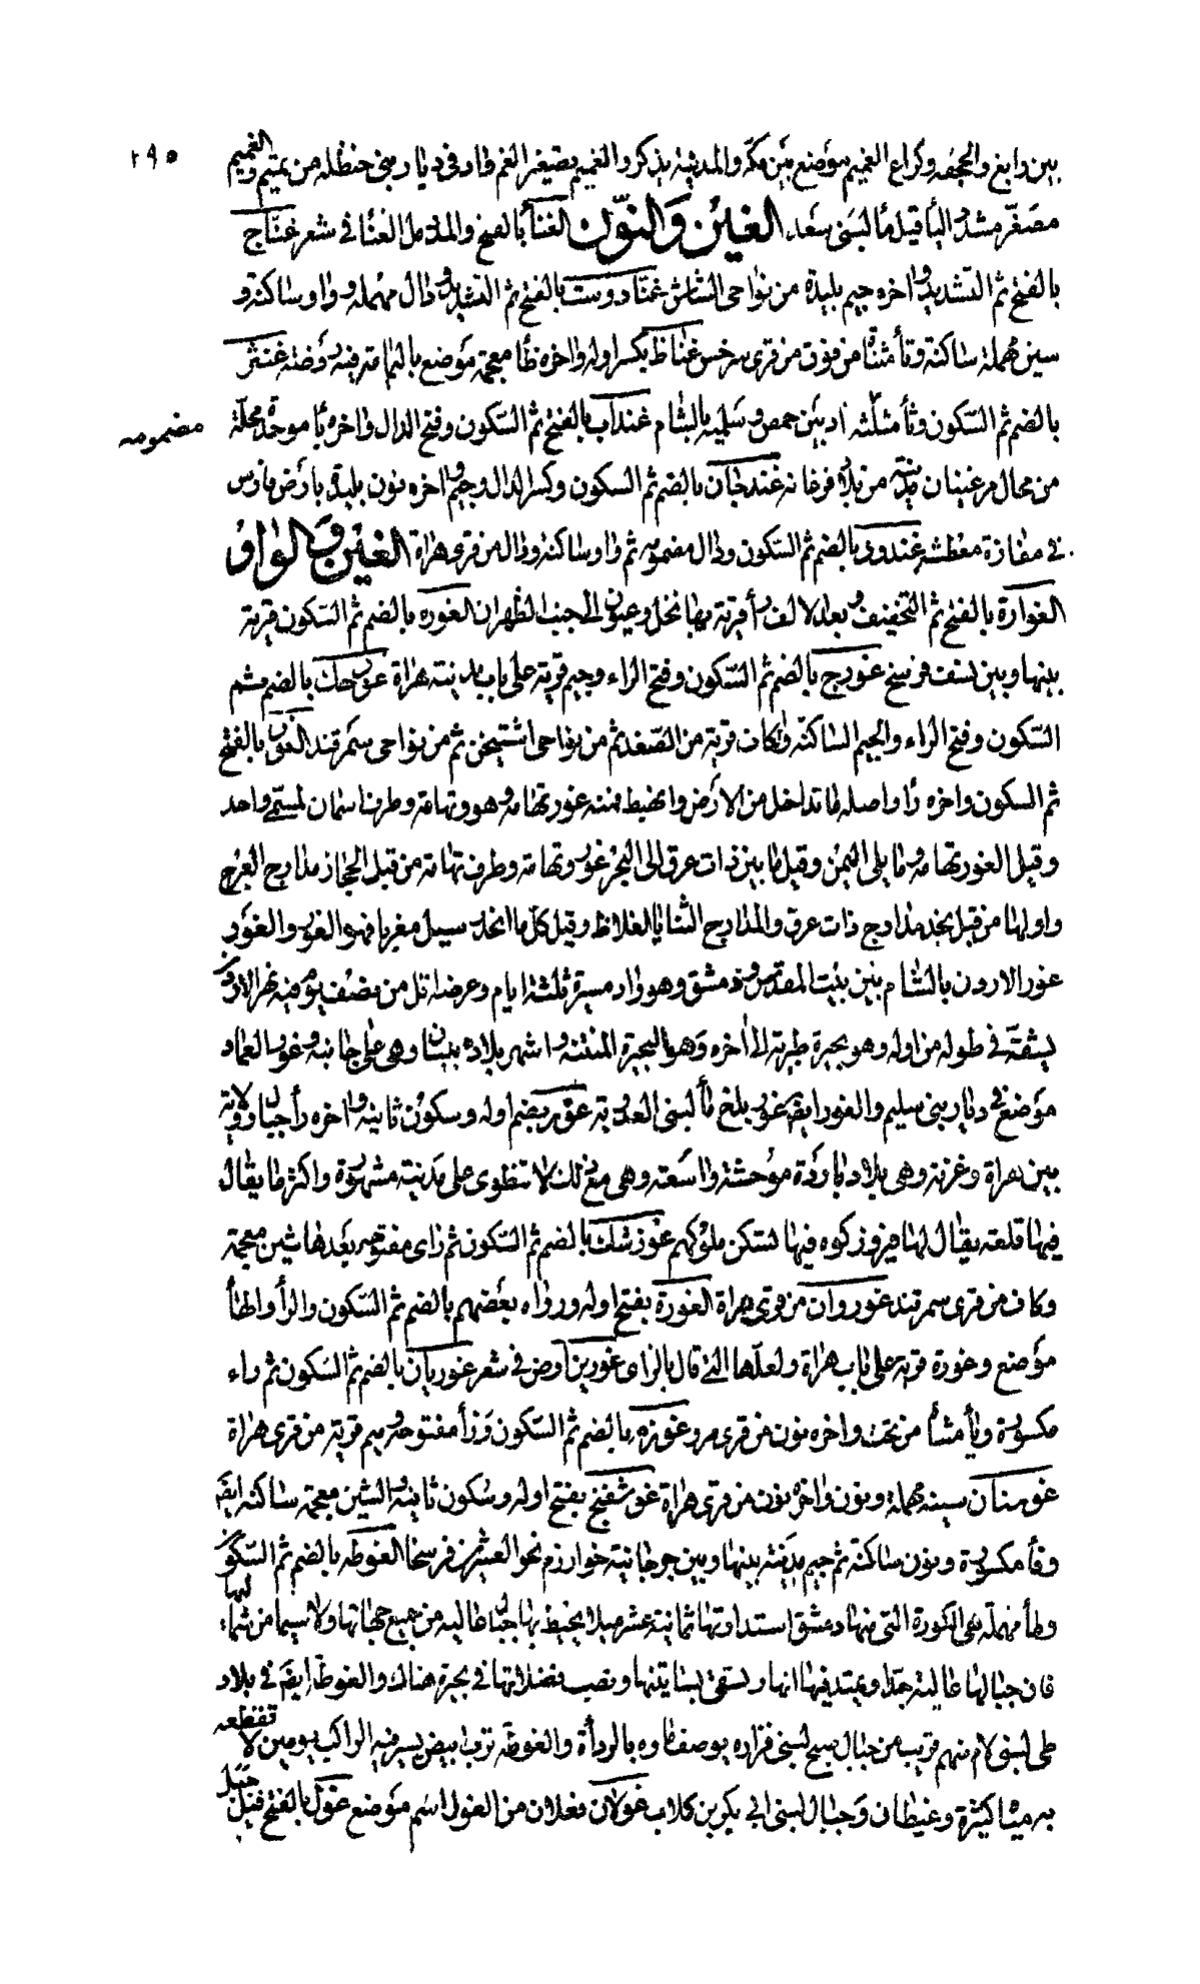 ٢٩٥
بين رابغ والجحفه وكراع الغميم موضع بين مكة والمدينة يذكر والغميم بصتغير الغم واد فى ديار بنى حنظله من تميم والغميم
مصغر مشدد اليأ قيل مأ لبنى سعد الغين والنون الغنأ بالفتح والمد رمل الغنأ فى شعر غناج
بالفتح ثم التشديد واخره جيم بليدة من نواحى الشاش غنادوست بالفتح ثم التشديد ودال مهمله وواو ساكنة و
سين مهملة ساكنة وتأ مثناة من فوق من قرى سرخس غناظ بكسر اوله واخره ظأ معجمة موضع باليمامة فيه روضة غنثر
بالضم ثم السكون وثأ مثلثه واد بين حمص وسلميه بالشام غنداب بالفتح ثم السكون وفتح الدال واخره بأ موحدة محلة
مضمومه
من محال مرغينان مدينة من بلاد فرغانه غندجان بالضم ثم السكون وكسر الدال وجيم واخره نون بليدة بارض فارس
فى مفازة معطشه غندوذ بالضم ثم السكون ودال مضمومه ثم واو ساكنه وذال من قرى هراة الغين والواو
الغوارة بالفتح ثم التخفيف وبعد الالف رأ قرية بها نخل وعيون الى جنب الظهران الغوره بالضم ثم السكون قرية
بينها وبين نسف فرسخ غورج بالضم ثم السكون وفتح الراء وجيم قرية على باب مدينة هراة غورجك بالضم ثم
السكون وفتح الراء والجيم الساكنة والكاف قرية من الصغد ثم من نواحى اشتيخن ثم من نواحى سمرقند الغور بالفتح
ثم السكون واخره رأ واصله ما تداخل من الارض وانهبط فمنه غور تهامه وهو وتهامة وطرفا اسمان لمسمى واحد
وقيل الغور تهامه وما يلى اليمن وقيل ما بين ذات عرق الى البحر غور وتهامة وطرف تهامة من قبل الحجاز مدارج العرج
واولها من قبل نجد مدارج ذات عرق والمدارج الثنايا الغلاظ وقيل كل ما انحدر سيله مغربا فهو الغور والغور
غور الاردن بالشام بين بيت المقدس ودمشق وهو واد مسيرة ثلثة ايام وعرضه اقل من نصف يوم فيه نهر الاردن
يشقه فى طوله من اوله وهو بحيرة طبرية الى اخره وهو البحيرة المنتنه واشهر بلاده بيسان وهى على جانبه وغور العماد
موضع فى ديار بنى سليم والغور ايضا غور بلخ مأ لبنى العدوية غور بضم اوله وسكون ثانيه واخره رأ جبال وولاية
بين هراة وغزنة وهى بلاد باردة موحشة واسعة وهى مع ذلك لا تنطوى على مدينة مشهورة واكثر ما يقال
فيها قلعة يقال لها فيروزكوه فيها تسكن ملوكهم غوزشك بالضم ثم السكون ثم زاى مفتوحه بعدها شين معجمة
وكاف من قرى سمرقند غوروان من قرى هراة الغورة بفتح اوله ورواه بعضهم بالضم ثم السكون والرأ والهأ
موضع وغورة قرية على باب هراة ولعلها التى قال بالزاى غورين ارض فى شعر غوريان بالضم ثم السكون ثم راء
مكسورة ويأ مثناة من تحت واخره نون من قرى مرو غوزم بالضم ثم السكون وزأ مفتوحة وميم قرية من قرى هراة
غوسنان سينه مهملة ونون واخره نون من قرى هراة غوشفنج بفتح اوله وسكون ثانيه والشين معجمة ساكنه ايضا
وفأ مكسورة ونون ساكنة ثم جيم مدينة بينها وبين جرجانية خوارزم نحو العشرين فرسخا الغوطه بالضم ثم السكون
وطأ مهملة هى الكورة التى منها دمشق استدارتها ثمانية عشر ميلا يحيط بها جبال عاليه من جميع جهاتها ولا سيما من شماليها
فان جبالها عالية جدا ويمتد فيها انهار تسقى بساتينها وتصب فضلاتها فى بحيرة هناك والغوطة ايضا فى بلاد
طى لبنى لام منهم قريب من جبال صبح لبنى فزاره يوصف ماوه بالردأة والغوطة تربا ابيض يسير فيه الراكب يومين لا تقطعه
به مياه كثيرة وغيطان وجبال لبنى ابى بكر بن كلاب غولان فعلان من الغول اسم موضع غول بالفتح قيل جبل